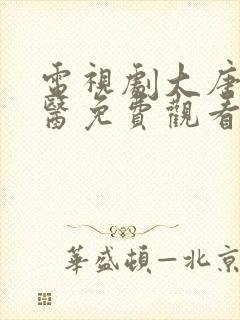 電視劇大唐
醫免費觀看
華盛頓—北京